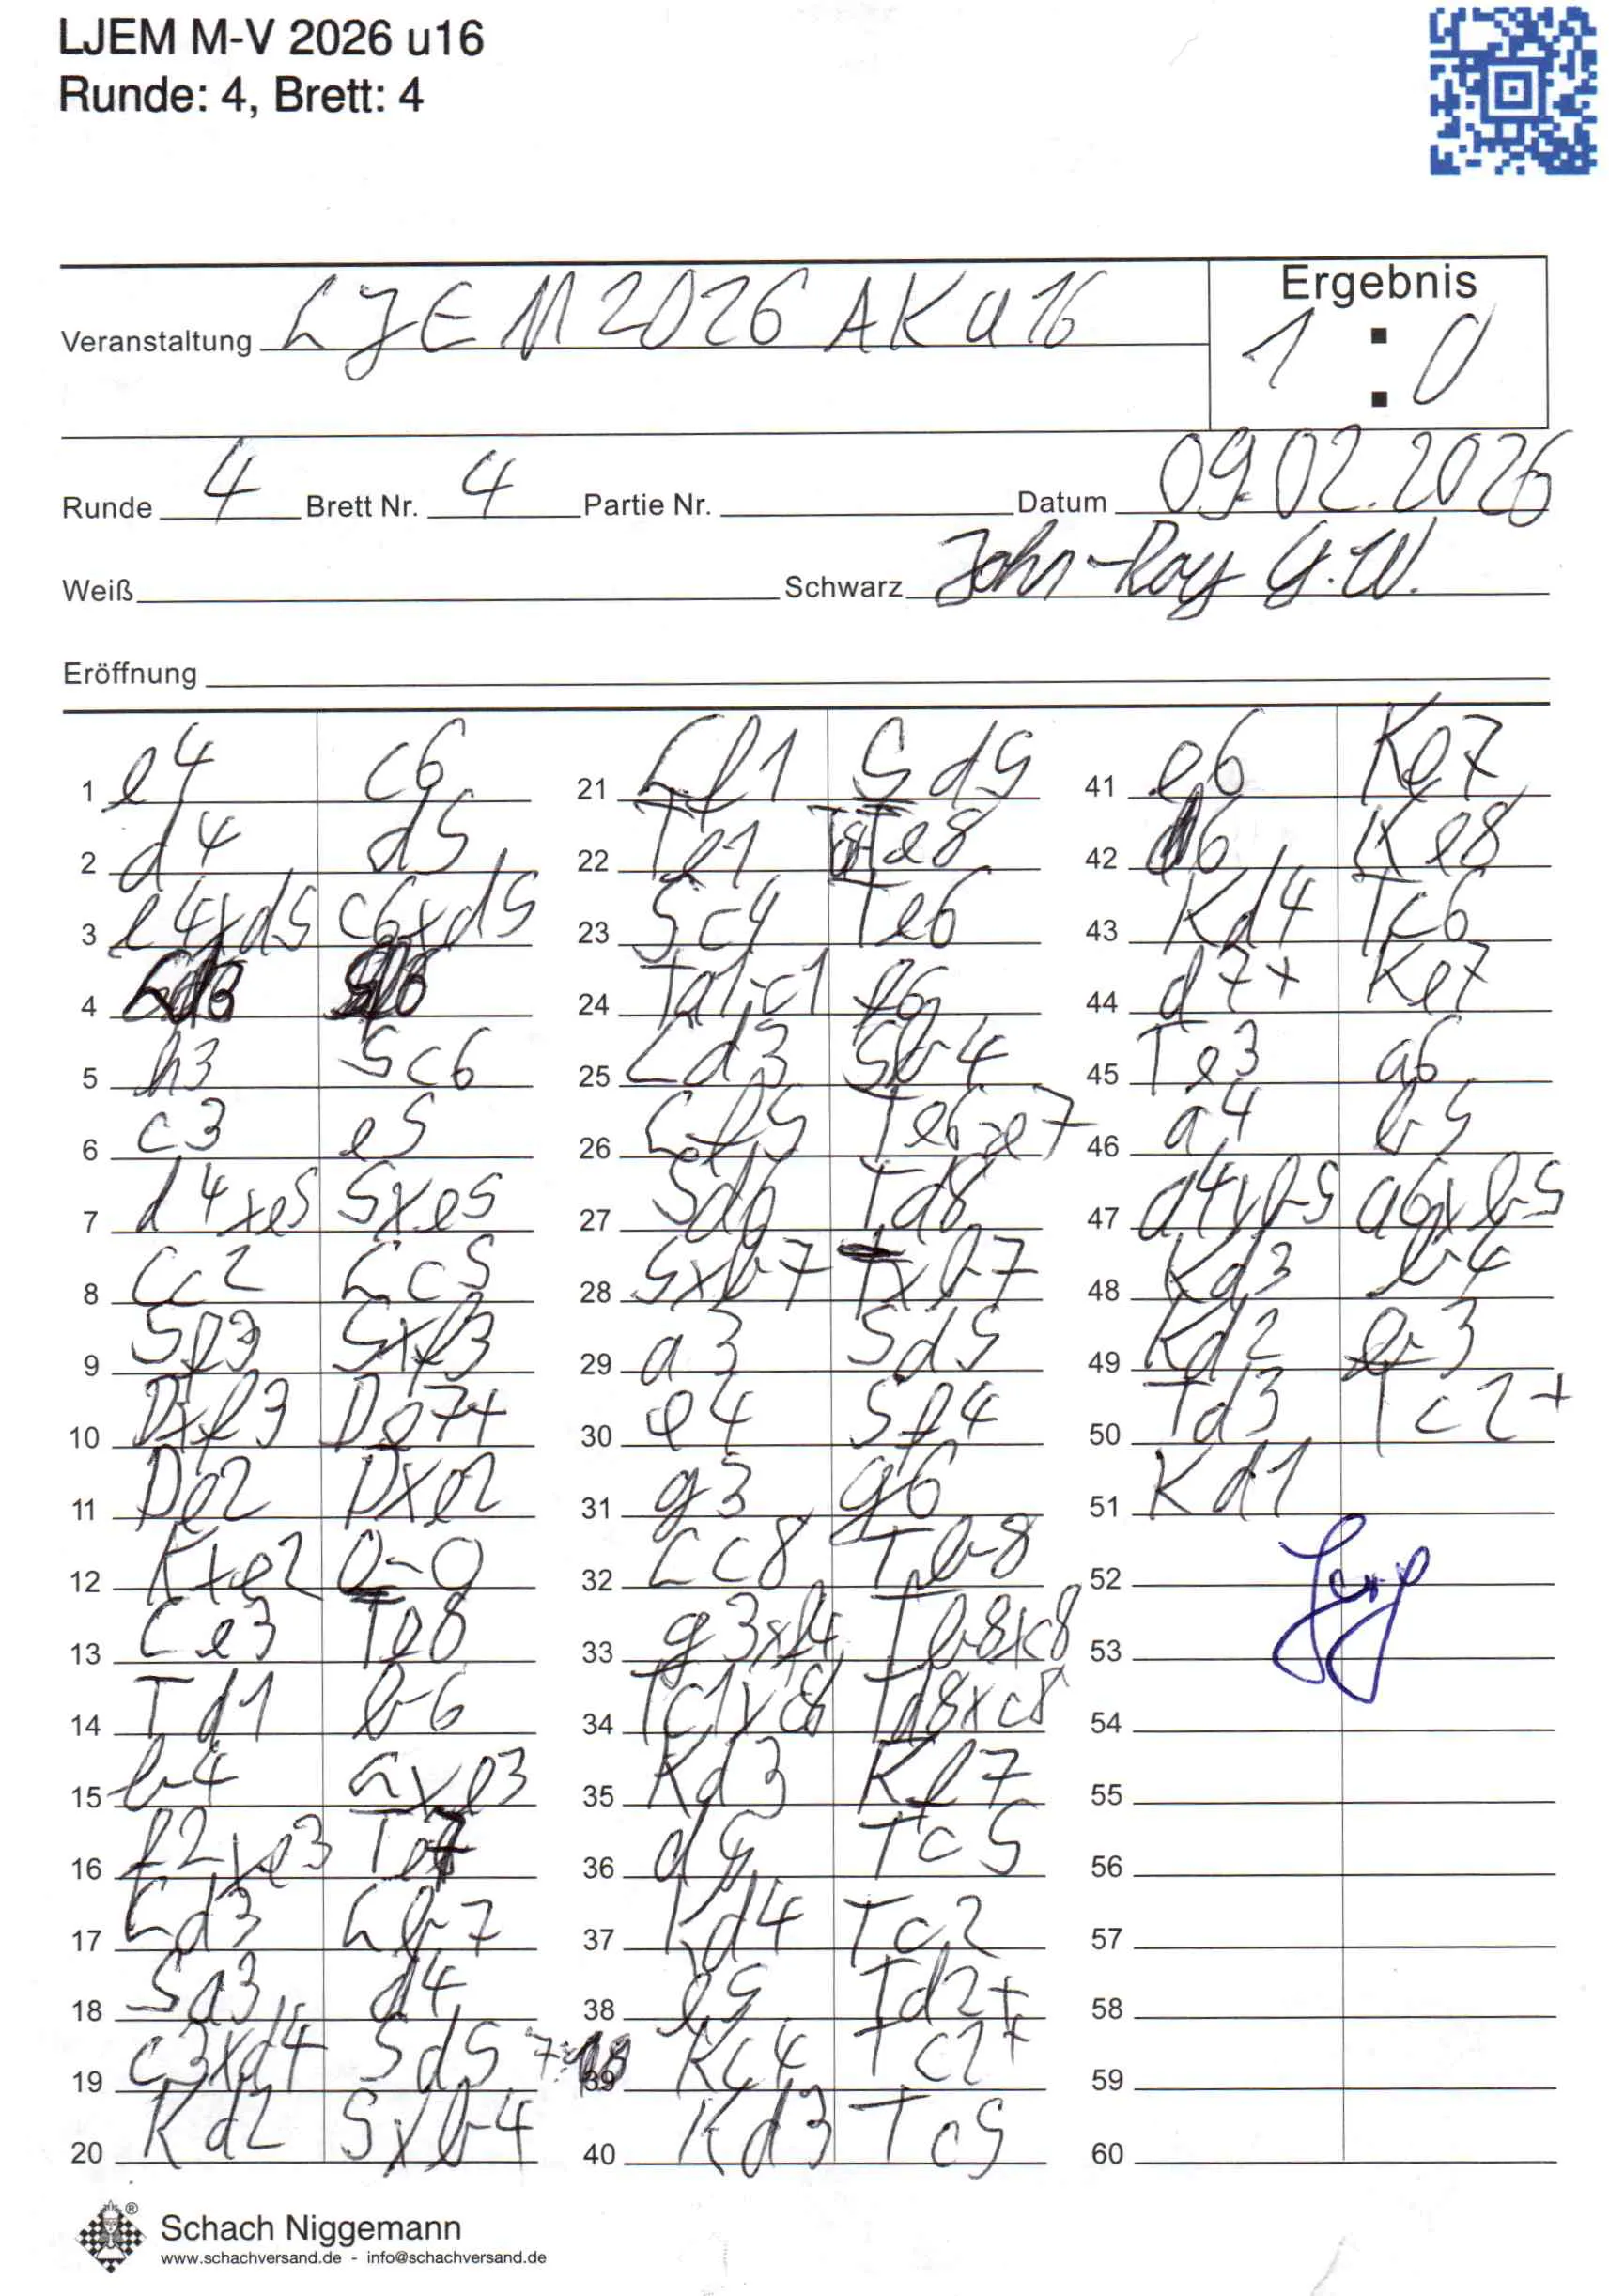 LJEM M-V 2026 u16
Runde: 4, Brett: 4
Veranstaltung LJEM 2026 AK u16
Ergebnis
1 : 0
Runde 4 Brett Nr. 4 Partie Nr. Datum 09.02.2026
Weiß Schwarz John-Roy G.W.
Eröffnung
1 e4 c6
2 d4 d5
3 e4xd5 c6xd5
4 Ld3
5 h3 Sc6
6 c3 e5
7 d4xe5 Sxe5
8 Lc2 Lc5
9 Sf3 Sxf3
10 Dxf3 De7+
11 De2 Dxe2
12 Kxe2 0-0
13 Le3 Te8
14 Td1 b6
15 b4 Lxe3
16 f2xe3 Te7
17 Ld3 Lb7
18 Sa3 d4
19 c3xd4 Sd5
20 Kd2 Sxb4
21 Lf1 Sd5
22 Te1 Te8
23 Sc4 Te6
24 Ta1-c1 f6
25 Ld3 Sb4
26 Lf5 Te6-e7
27 Sd6 Td8
28 Sxb7 Txb7
29 a3 Sd5
30 e4 Sf4
31 g3 g6
32 Lc8 Tb8
33 g3xf4 Tb8xc8
34 Tc1xc8 Td8xc8
35 Kd3 Kf7
36 d5 Tc5
37 Kd4 Tc2
38 e5 Td2+
39 Kc4 Tc2+
40 Kd3 Tc5
41 e6 Ke7
42 d6 Ke8
43 Kd4 Tc6
44 d7+ Ke7
45 Te3 a6
46 a4 b5
47 a4xb5 a6xb5
48 Kd3 b4
49 Kd2 b3
50 Td3 Tc2+
51 Kd1
52
53
54
55
56
57
58
59
60
Schach Niggemann
www.schachversand.de - info@schachversand.de